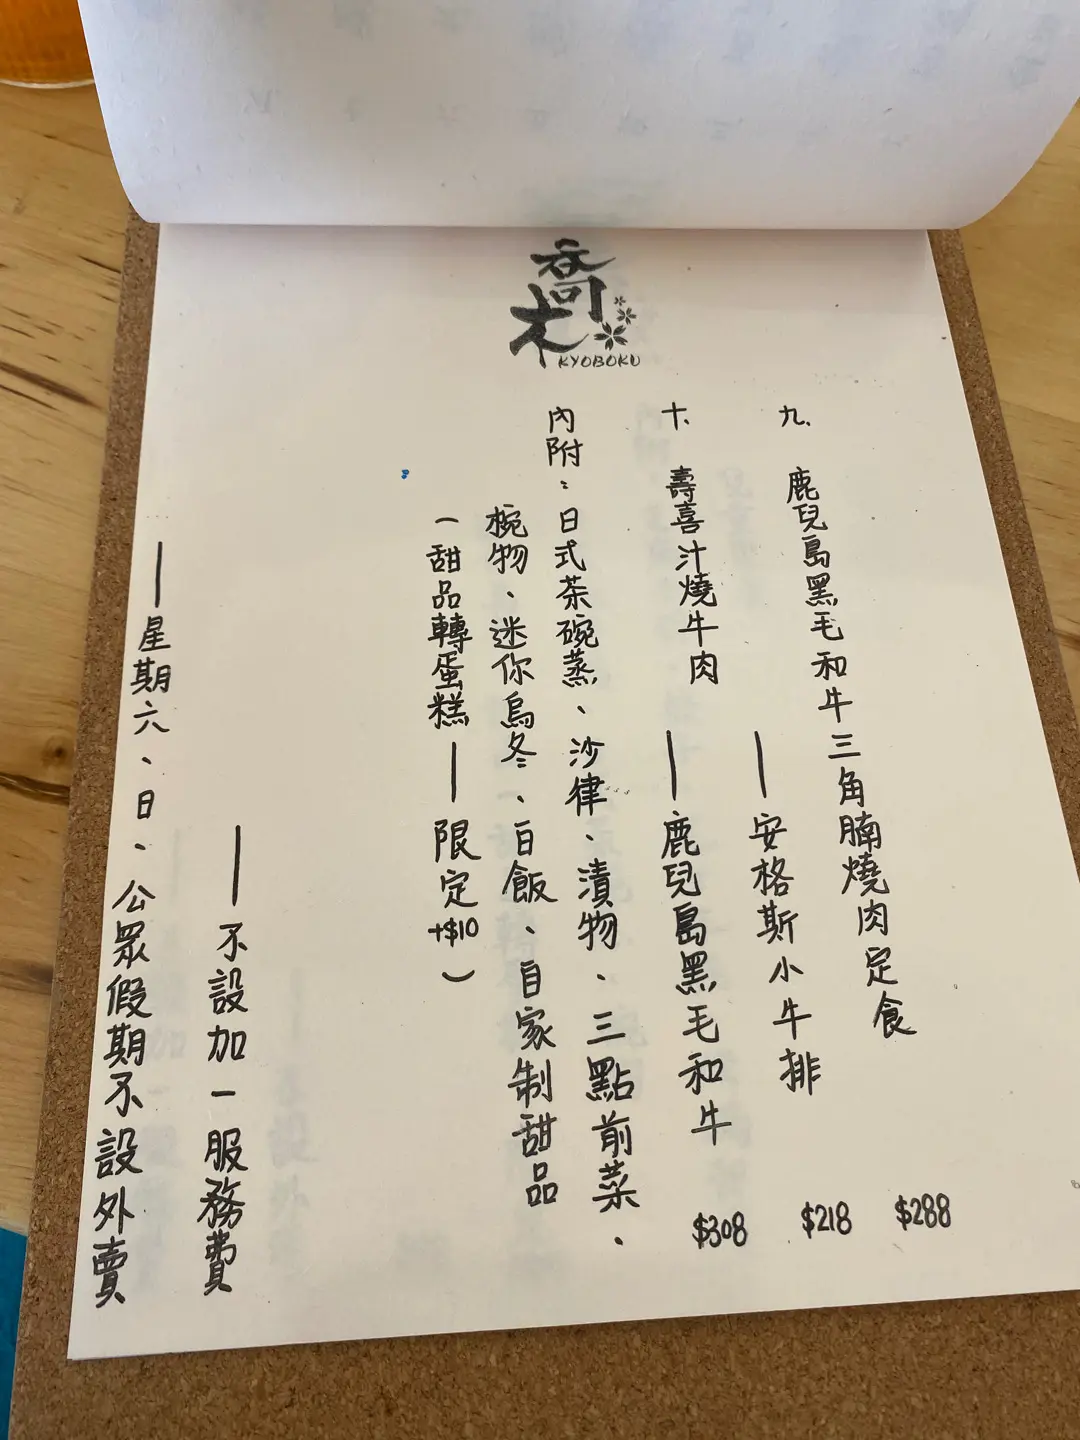 喬木
KYOBOKU
九、鹿兒島黑毛和牛三角腩燒肉定食 $288
——安格斯小牛排 $218
十、壽喜汁燒牛肉——鹿兒島黑毛和牛 $308
內附：日式茶碗蒸、沙律、漬物、三點前菜、
椀物、迷你烏冬、白飯、自家制甜品
（甜品轉蛋糕——限定+$10）
——不設加一服務費
——星期六、日、公眾假期不設外賣